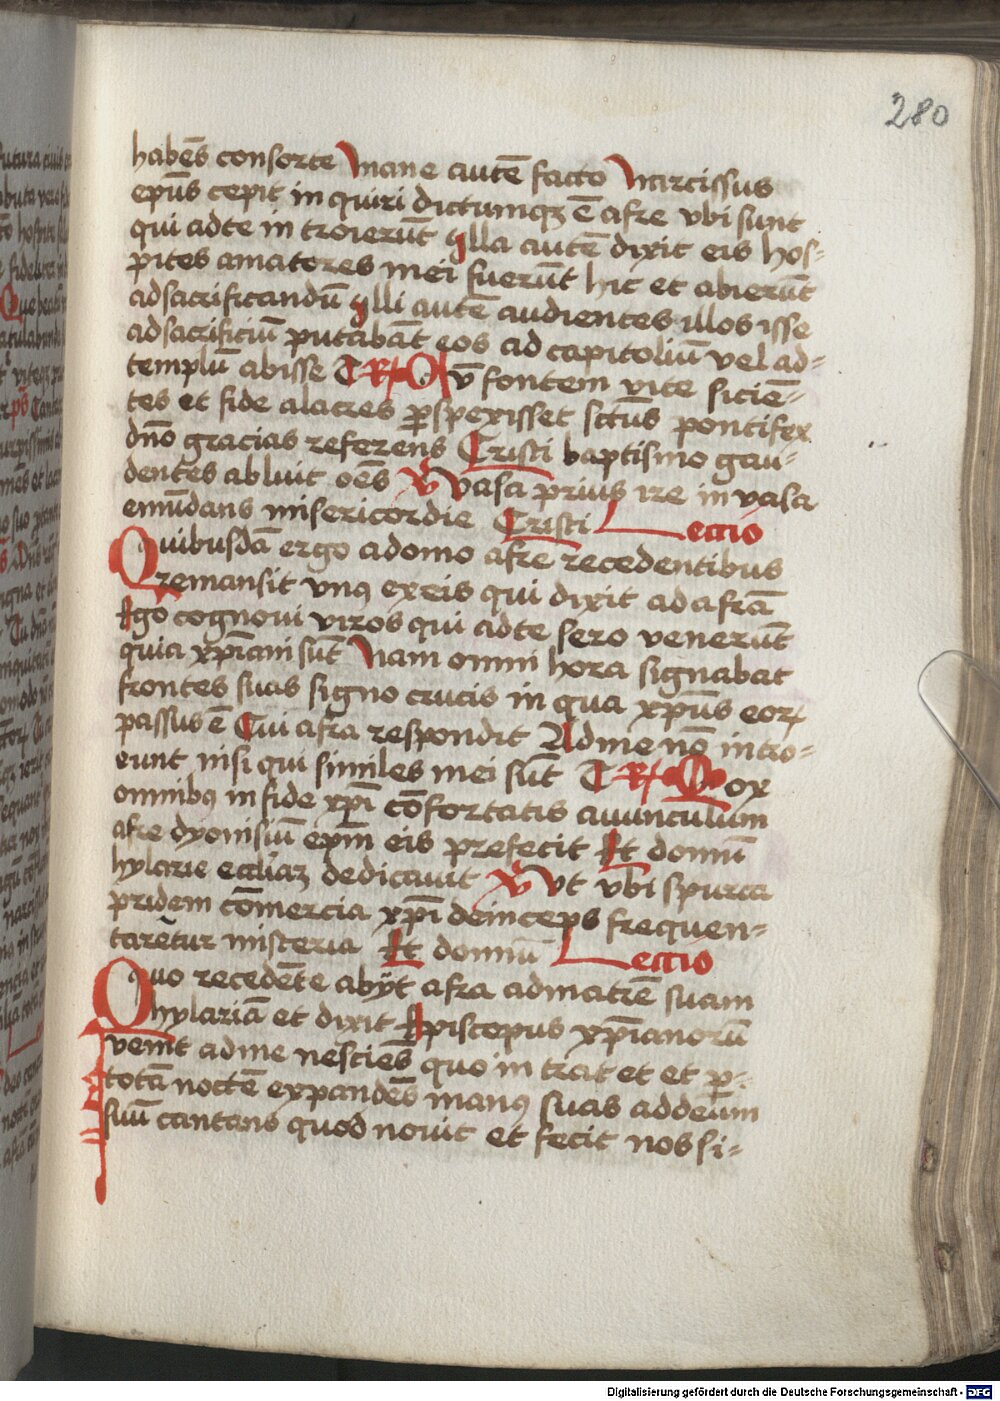 280
habēs consorte Mane autē facto Narcissus
ep̄us cepit in quiri dictumqȝ ē afre vbi sunt
qui adte in troierūt Illa autē dixit eis hos-
pites amatores mei fuerūt hic et abierūt
adsacrificandū Illi autē audientes illos isse
adsacrificiū putabāt eos ad capitoliū vel ad-
templū abisse R Cū fontem vite sicien-
tes et fide alacres ꝑspexisset sctūs pontifex
dn̄o gracias referens Cristi baptismo gau-
dentes abluit oēs V Vasa prius ire in vasa
emūdans misericordie Cristi Leccio
Quibusdā ergo adomo afre recedentibus
remansit vnꝰ exeis qui dixit ad afrā
Ego cognoui viros qui adte sero venerūt
quia xp̄iani sūt Nam omni hora signabat
frontes suas signo crucis in qua xp̄us eoꝝ
passus ē Cui afra respondit Ad me nō intro-
eunt nisi qui similes mei sūt R Mox
omnibꝰ in fide xp̄i cōfortatis auunculum
afre dyonisiū ep̄m eis prefecit Et domū
hylarie eccliaȝ dedicauit V Vt vbi spurca
pridem cōmercia xp̄i deinceps frequen-
tarētur misteria Et domū Leccio
Quo recedēte abijt afra admatrē suam
hylariā et dixit Episcopus xp̄ianorū
venit adme nesciēs quo in trat et et ꝑ-
totā noctē expandēs manꝰ suas addeum
suū cantans quod nouit et fecit nos si-
Digitalisierung gefördert durch die Deutsche Forschungsgemeinschaft - DFG